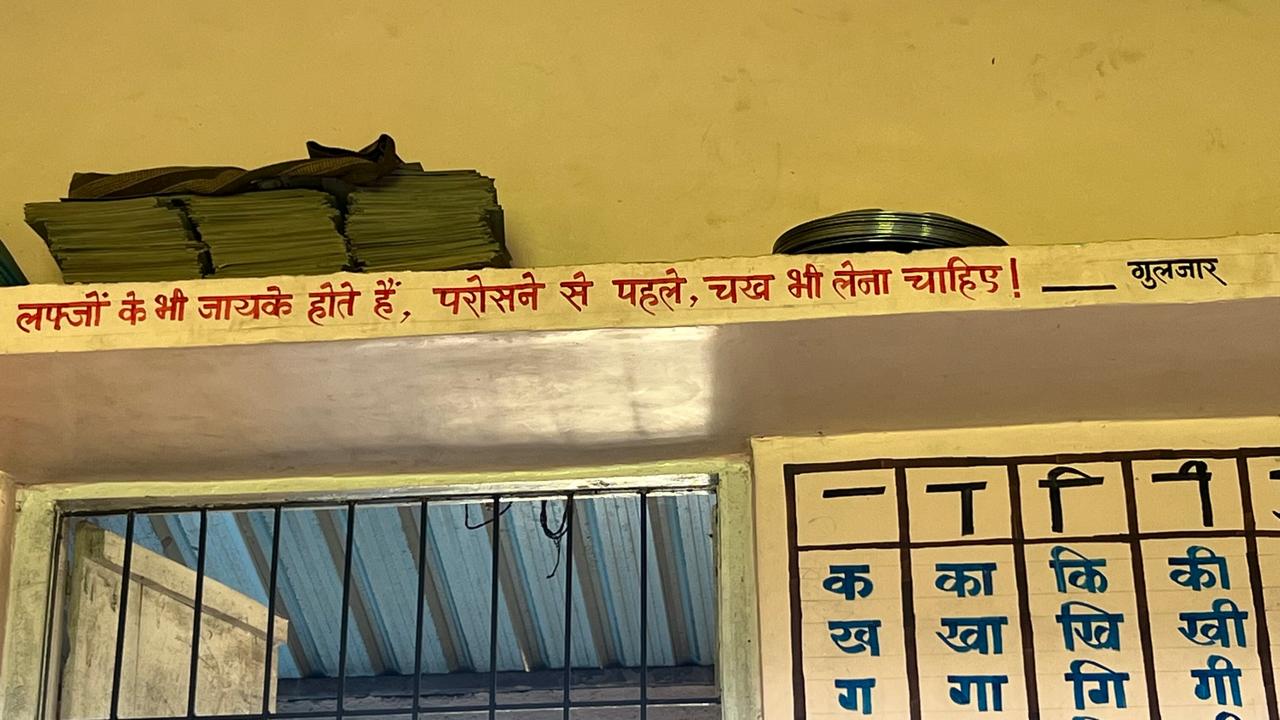 लफ्जों के भी जायके होते हैं, परोसने से पहले, चख भी लेना चाहिए! — गुलजार
— ा ि ी
क का कि की
ख खा खि खी
ग गा गि गी